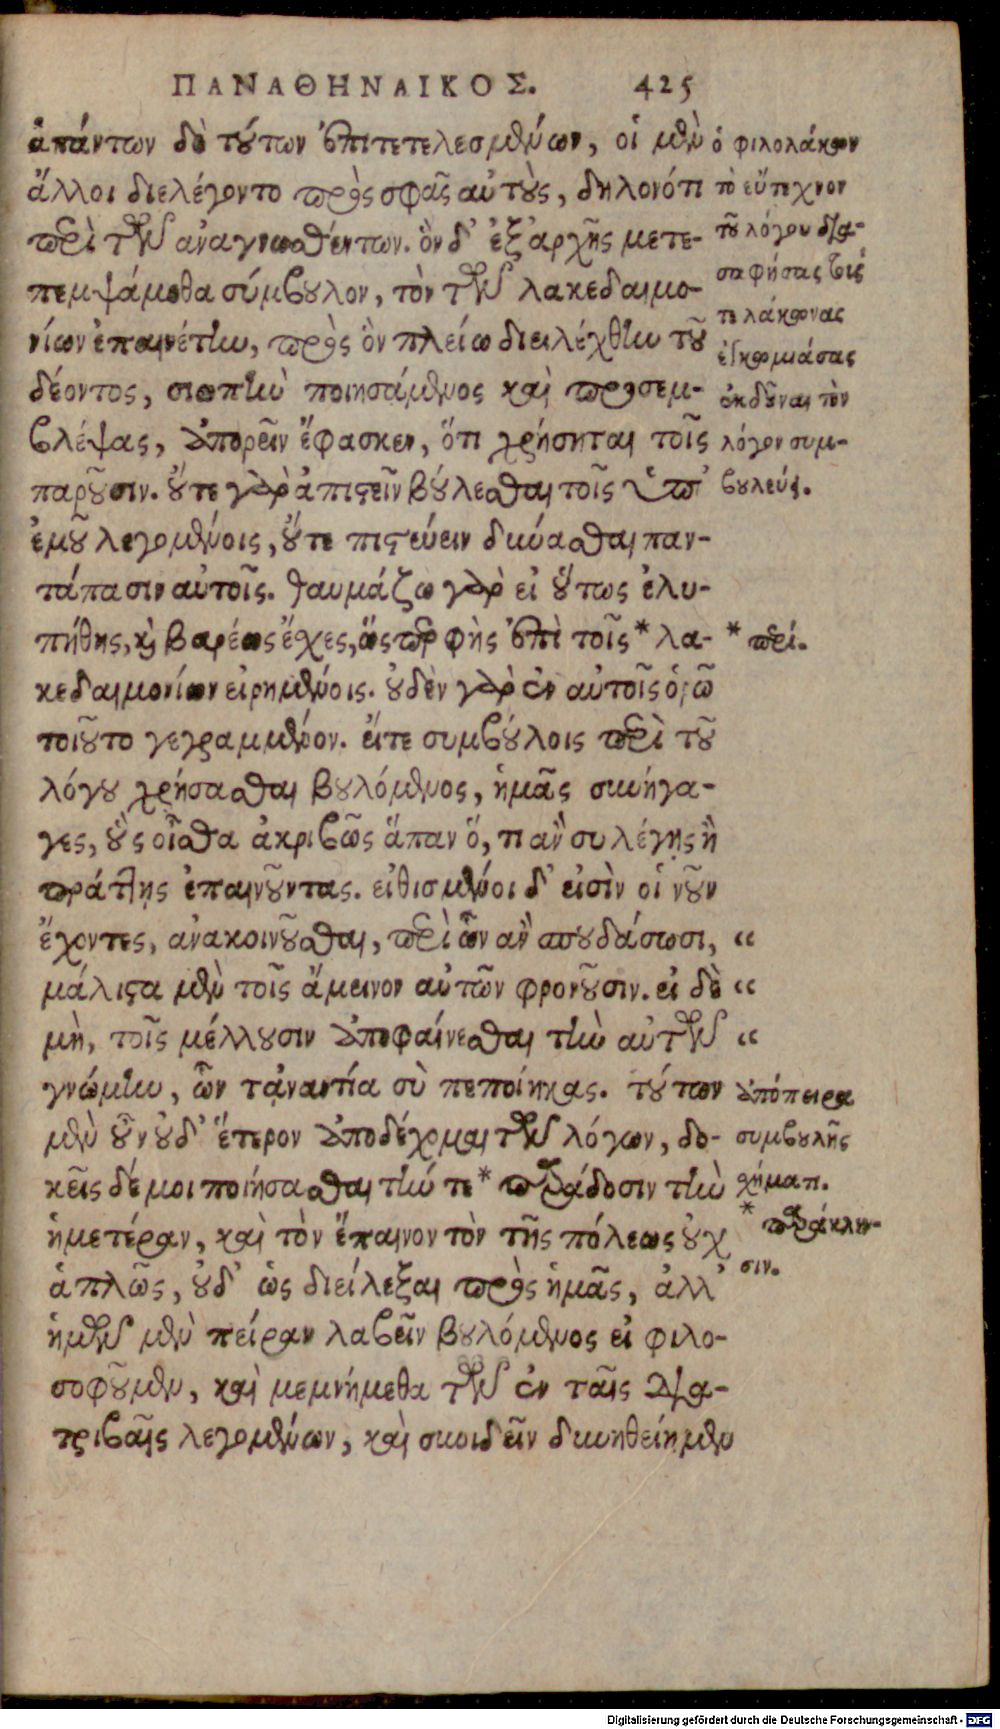 ΠΑΝΑΘΗΝΑΙΚΟΣ. 425
ἁπάντων δὲ τούτων ἐπιτετελεσμένων, οἱ μὲν
ἄλλοι διελέγοντο πρὸς σφᾶς αὐτοὺς, δηλονότι
περὶ τῶν ἀναγνωσθέντων. ὃν δ' ἐξ ἀρχῆς μετε-
πεμψάμεθα σύμβουλον, τὸν τῶν λακεδαιμο-
νίων ἐπαινέτην, πρὸς ὃν πλείω διειλέχθην τοῦ
δέοντος, σιωπὴν ποιησάμενος καὶ προσεμ-
βλέψας, ἀπορεῖν ἔφασκεν, ὅτι χρήσηται τοῖς
παροῦσιν. οὔτε γὰρ ἀπιστεῖν βούλεσθαι τοῖς ὑπ'
ἐμοῦ λεγομένοις, οὔτε πιστεύειν δύνασθαι παν-
τάπασιν αὐτοῖς. θαυμάζω γὰρ εἰ οὕτως ἐλυ-
πήθης, καὶ βαρέως ἔχες, ὥσπερ φὴς ἐπὶ τοῖς * λα-
κεδαιμονίων εἰρημένοις. οὐδὲν γὰρ ἐν αὐτοῖς ὁρῶ
τοιοῦτο γεγραμμένον. εἴτε συμβούλοις περὶ τοῦ
λόγου χρήσασθαι βουλόμενος, ἡμᾶς συνήγα-
γες, οὓς οἶσθα ἀκριβῶς ἅπαν ὅ, τι ἂν συ λέγῃς ἢ
πράττῃς ἐπαινοῦντας. εἰθισμένοι δ' εἰσὶν οἱ νοῦν
ἔχοντες, ἀνακοινοῦσθαι, περὶ ὧν ἂν σπουδάσωσι, “
μάλιστα μὲν τοῖς ἄμεινον αὑτῶν φρονοῦσιν. εἰ δὲ “
μὴ, τοῖς μέλλουσιν ἀποφαίνεσθαι τὴν αὑτῶν “
γνώμην, ὧν τἀναντία σὺ πεποίηκας. τούτων
μὲν οὖν οὐδ' ἕτερον ἀποδέχομαι τῶν λόγων, δο-
κεῖς δέ μοι ποιήσασθαι τήν τε * παράδοσιν τὴν
ἡμετέραν, καὶ τὸν ἔπαινον τὸν τῆς πόλεως οὐχ
ἁπλῶς, οὐδ' ὡς διείλεξαι πρὸς ἡμᾶς, ἀλλ'
ἡμῶν μὲν πεῖραν λαβεῖν βουλόμενος εἰ φιλο-
σοφοῦμεν, καὶ μεμνήμεθα τῶν ἐν ταῖς δια-
τριβαῖς λεγομένων, καὶ συνιδεῖν δυνηθείημεν
ὁ φιλολάκων
τὸ εὔτεχνον
τοῦ λόγου δια-
σαφήσας
λάκωνας
ἐγκωμιάσας
ἐκδοῦναι τὸν
λόγον συμ-
βουλεύει.
* περί.
ἀπόπειρα
συμβουλῆς
χήματι.
* παράκλη-
σιν.
Digitalisierung gefördert durch die Deutsche Forschungsgemeinschaft - DFG